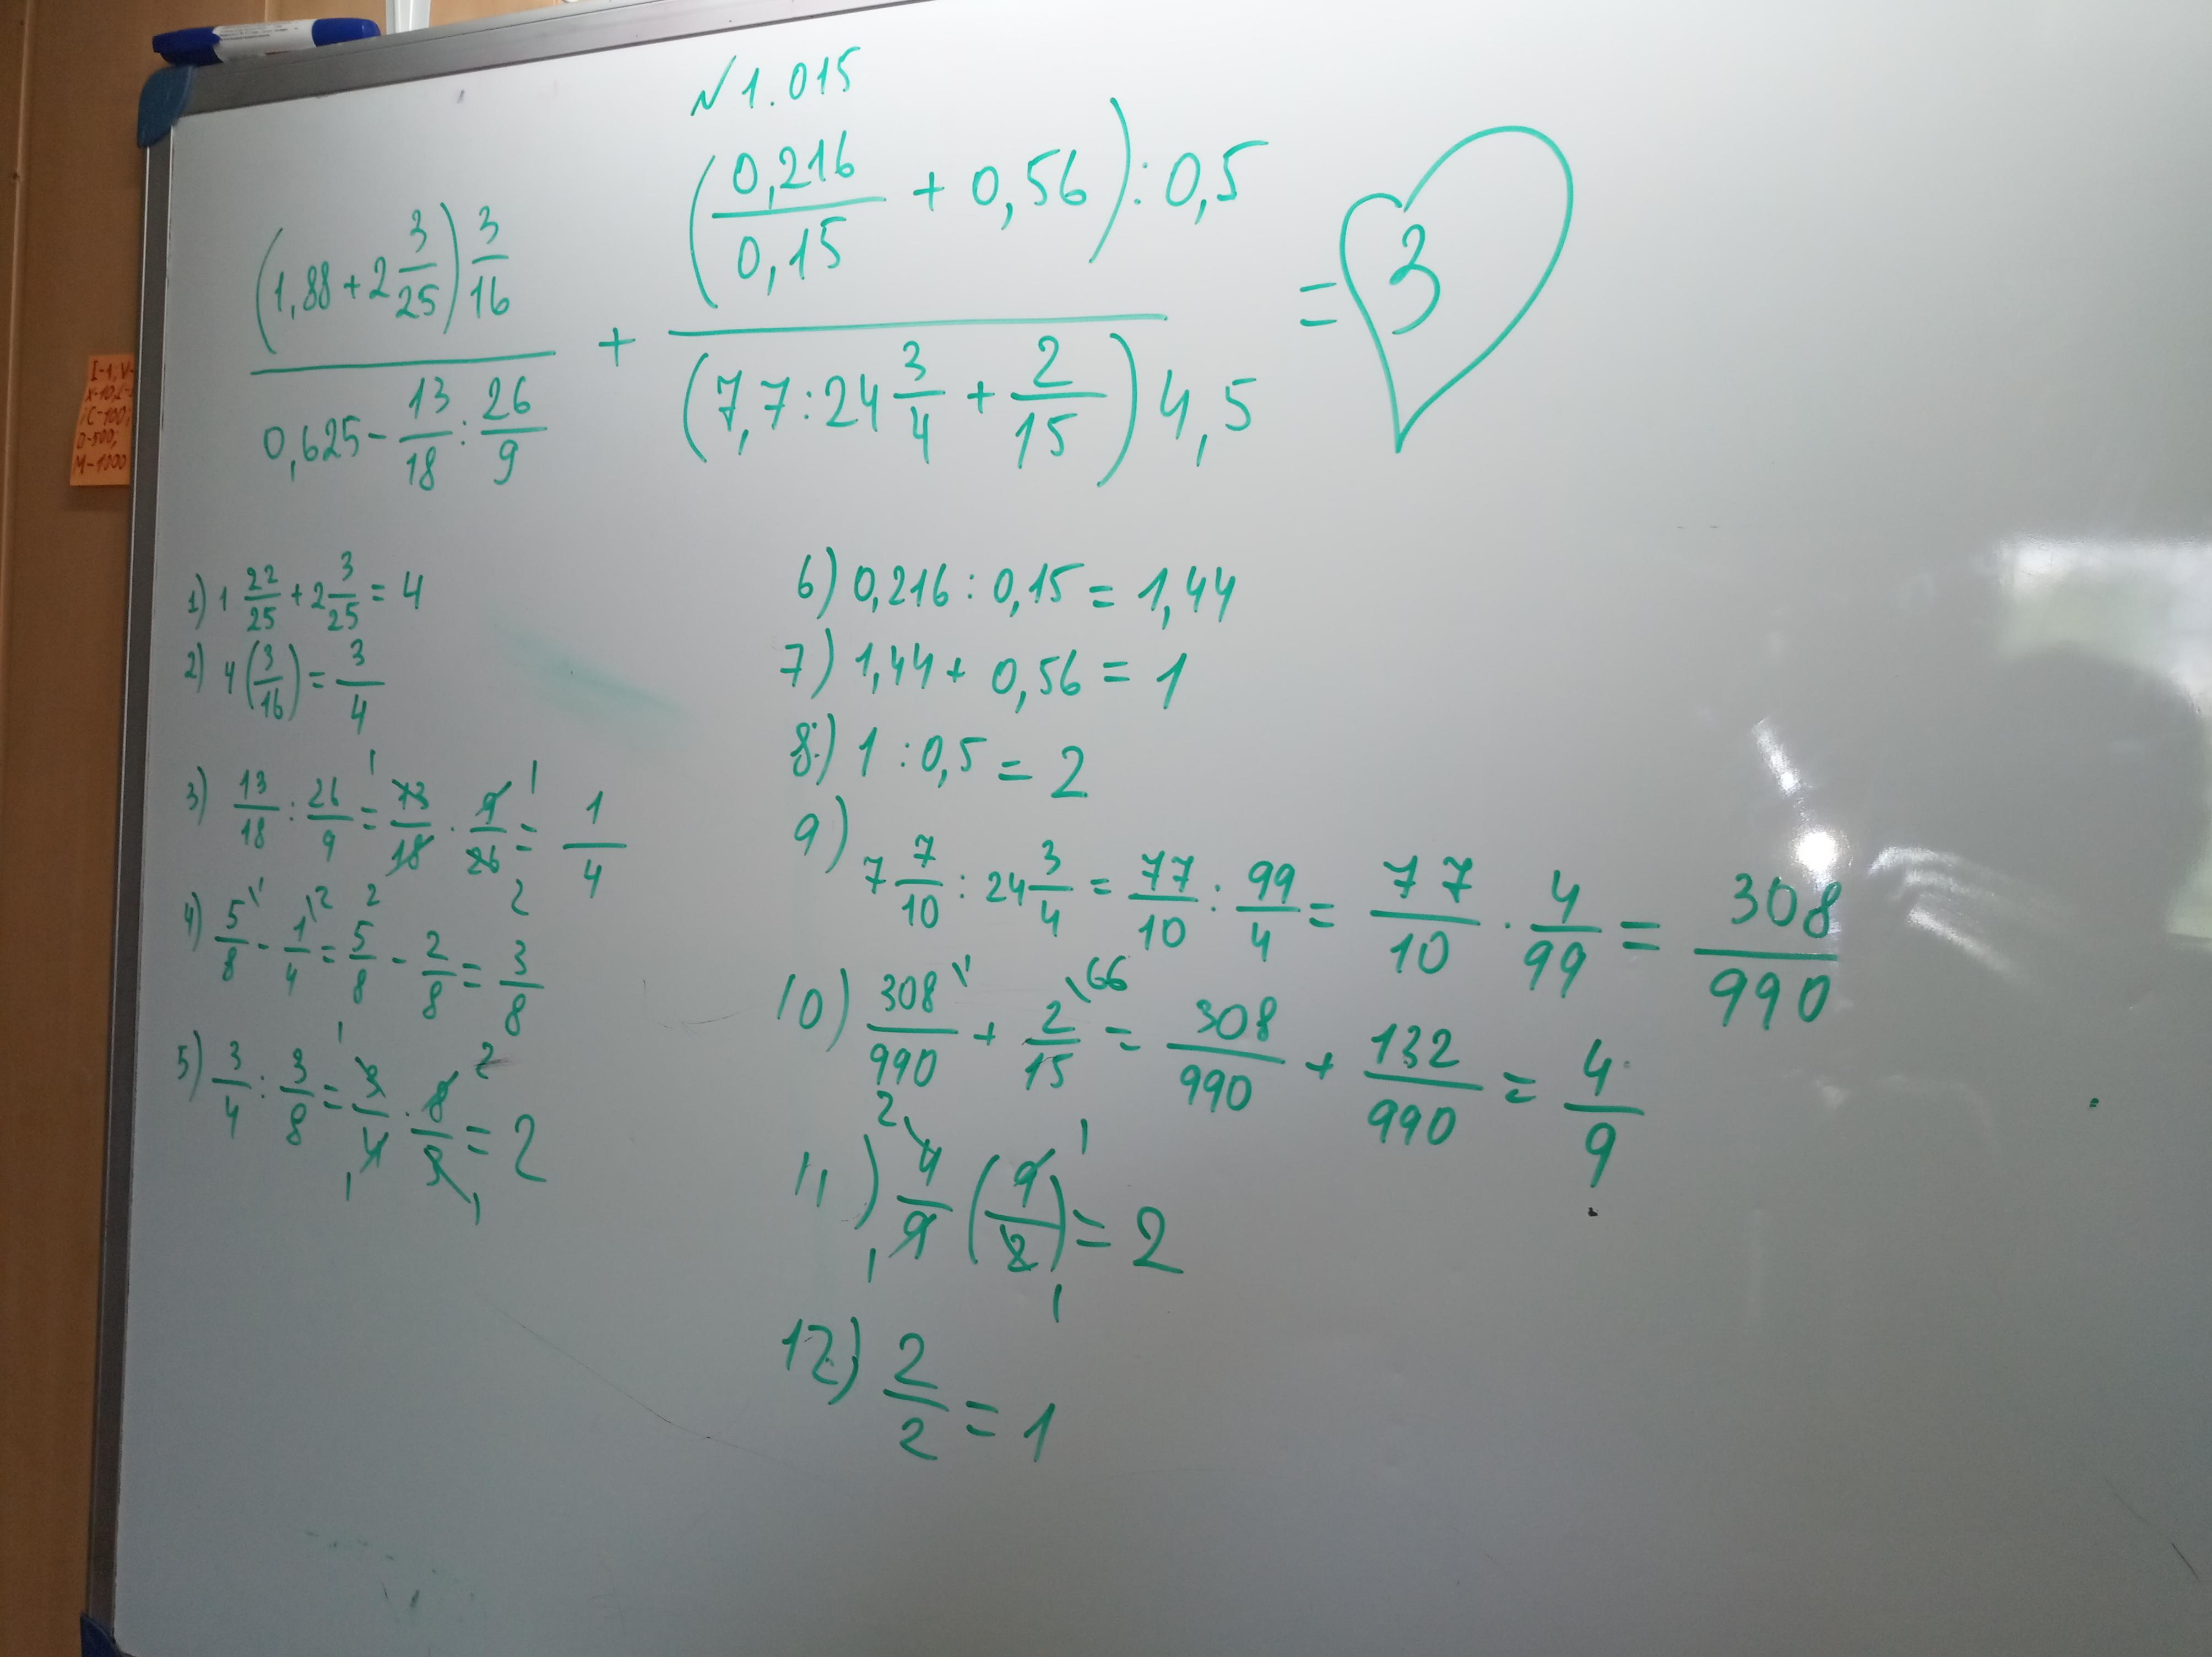 N 1.015
(1,88 + 2 3/25) 3/16 / (0,625 - 13/18 : 26/9) + (0,216/0,15 + 0,56) : 0,5 / (7,7 : 24 3/4 + 2/15) 4,5 = 3
1) 1 22/25 + 2 3/25 = 4
2) 4 (3/16) = 3/4
3) 13/18 : 26/9 = 13/18 · 9/26 = 1/4
4) 5/8 - 1/4 = 5/8 - 2/8 = 3/8
5) 3/4 : 3/8 = 3/4 · 8/3 = 2
6) 0,216 : 0,15 = 1,44
7) 1,44 + 0,56 = 1
8) 1 : 0,5 = 2
9) 7 7/10 : 24 3/4 = 77/10 : 99/4 = 77/10 · 4/99 = 308/990
10) 308/990 + 2/15 = 308/990 + 132/990 = 4/9
11) 4/9 (9/2) = 2
12) 2/2 = 1
I-1, V-
X-10, L-
C-100,
D-500,
M-1000